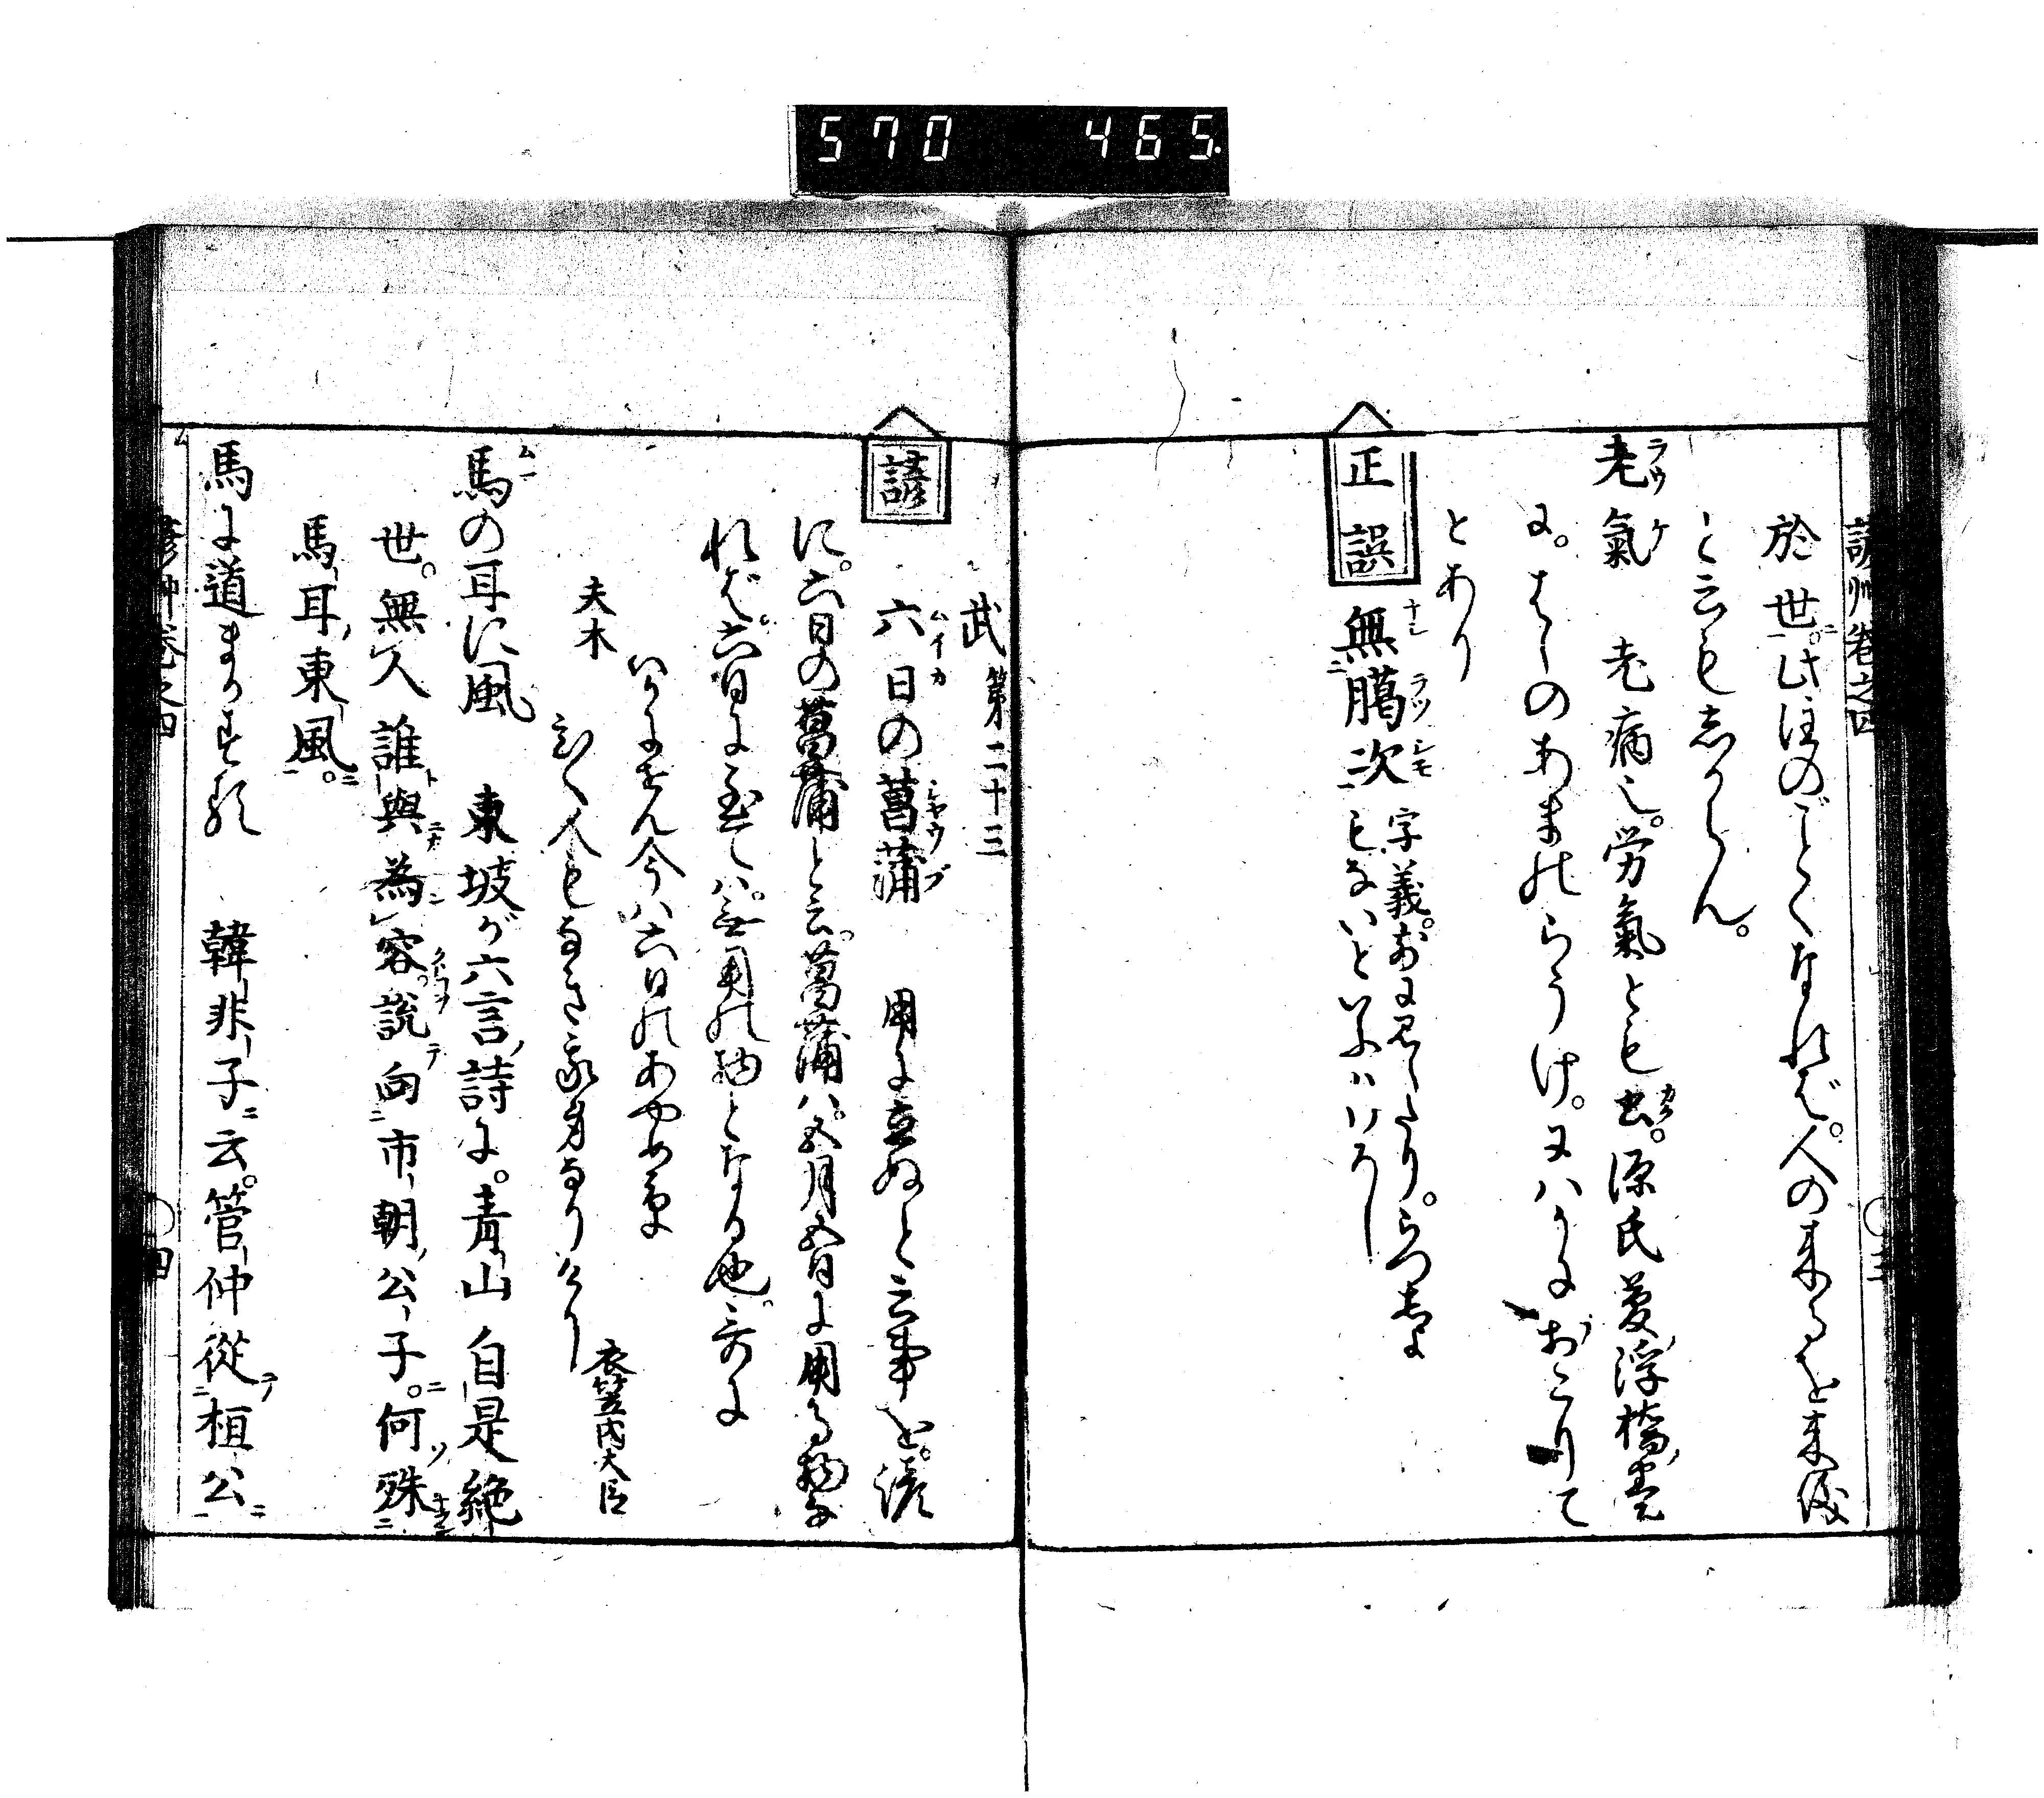 570 465.
諺草巻之四
於世。此注のごとくなれば。人の来るを来儀
と云もしからん。
老氣 老病也。労氣とも書。源氏夢浮橋巻
に。はゝのあまのらうけ。にはかにおこりて
とあり
正誤 無臈次 字義。前に見えたり。らつしよ
もないといふはいやし
武 第二十三
諺 六日の菖蒲 用に立ぬと云事を。諺
に。六日の菖蒲と云。菖蒲は。五月五日に用る物な
れば。六日に至ては。無用の物となる也。哥に
夫木 いかにせん今は六日のあやめ草
ひく人もなき我身なりけり 衣笠内大臣
馬の耳に風 東坡が六言詩に。青山自是絶
世。無人誰與為容。説向市朝公子。何殊
馬耳東風。
馬に道まかする 韓非子云。管仲從桓公
諺艸巻之四 四